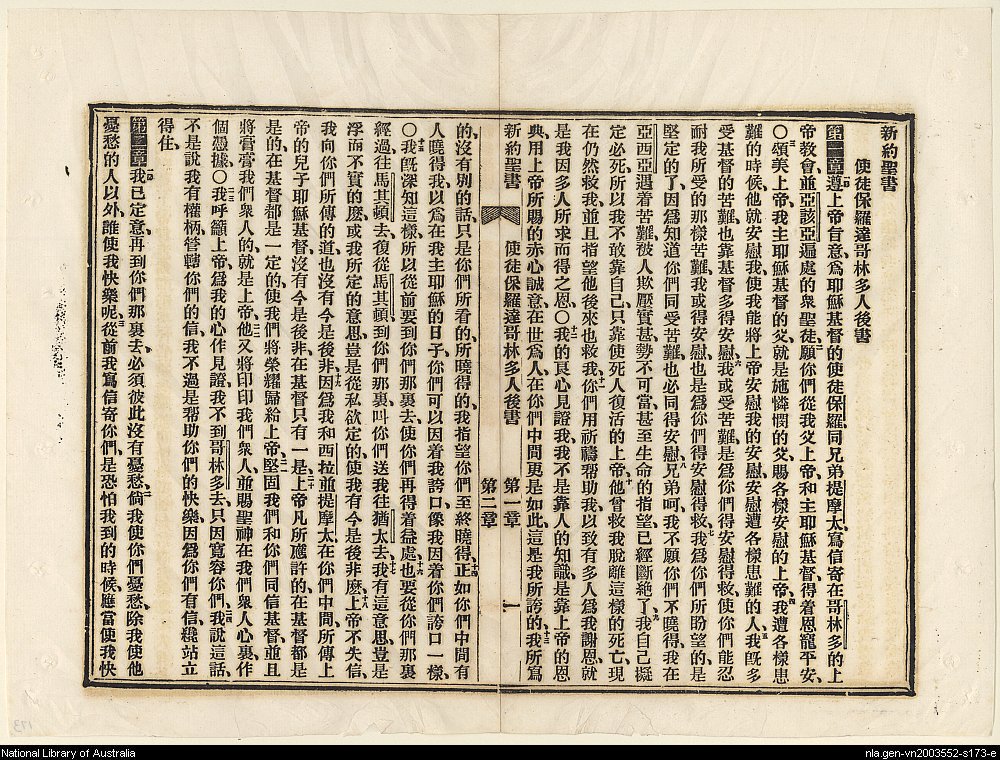 新約聖書
使徒保羅達哥林多人後書
第一章遵上帝旨意、爲耶穌基督的使徒保羅同兄弟提摩太、寫信寄在哥林多的上
帝教會、並亞該亞遍處的衆聖徒、願你們從我父上帝、和主耶穌基督、得着恩寵平安、
〇頌美上帝、我主耶穌基督的父、就是施憐憫的父、賜各樣安慰的上帝、我遭各樣患
難的時候、他就安慰我、使我能將上帝安慰我的安慰、安慰遭各樣患難的人、我旣多
受基督的苦難、也靠基督多得安慰、我或受苦難、是爲你們得安慰得救、使你們能忍
耐我所受的那樣苦難、我或得安慰、也是爲你們得安慰得救、我爲你們所盼望的、是
堅定的了、因爲知道你們同受苦難、也必同得安慰、兄弟呵、我不願你們不曉得、我在
亞西亞遇着苦難、被人欺壓實甚、勢不可當、甚至生命的指望、已經斷絶了、我自己擬
定必死、所以我不敢靠自己、只靠使死人復活的上帝、他曾救我脫離這樣的死亡、現
在仍然救我、並且指望他後來也救我、你們用祈禱幫助我、以致有多人爲我謝恩、就
是我因多人所求而得之恩〇我的良心見證我、我不是靠人的知識、是靠上帝的恩
典、用上帝所賜的赤心誠意、在世爲人、在你們中間更是如此、這是我所誇的、我所寫
新約聖書 使徒保羅達哥林多人後書 第一章 第二章 一
的、沒有別的話、只是你們所看的、所曉得的、我指望你們至終曉得、正如你們中間有
人曉得我、以爲在我主耶穌的日子、你們可以因着我誇口、像我因着你們誇口一樣、
〇我旣深知這樣、所以從前要到你們那裏去、使你們再得着益處、也要從你們那裏
經過往馬其頓去、復從馬其頓到你們那裏、叫你們送我往猶太去、我有這意思、豈是
浮而不實的麽、或我所定的意思、豈是從私欲定的、使我有今是後非麽、上帝不失信、
我向你們所傳的道、也沒有今是後非、因爲我和西拉並提摩太、在你們中間所傳上
帝的兒子耶穌基督、沒有今是後非、在基督只有一是、上帝凡所應許的、在基督都是
是的、在基督都是一定的、使我們將榮耀歸給上帝、堅固我們和你們同信基督、並且
將膏膏我們衆人的、就是上帝、他又將印印我們衆人、並賜聖神在我們衆人心裏、作
個憑據〇我呼籲上帝、爲我的心作見證、我不到哥林多去、只因寬容你們、我說這話、
不是說我有權柄、管轄你們的信、我不過是幫助你們的快樂、因爲你們有信、纔站立
得住、
第二章我已定意、再到你們那裏去、必須彼此沒有憂愁、倘我使你們憂愁、除我使他
憂愁的人以外、誰使我快樂呢、從前我寫信寄你們、是恐怕我到的時候、應當使我快
National Library of Australia
nla.gen-vn2003552-s173-e